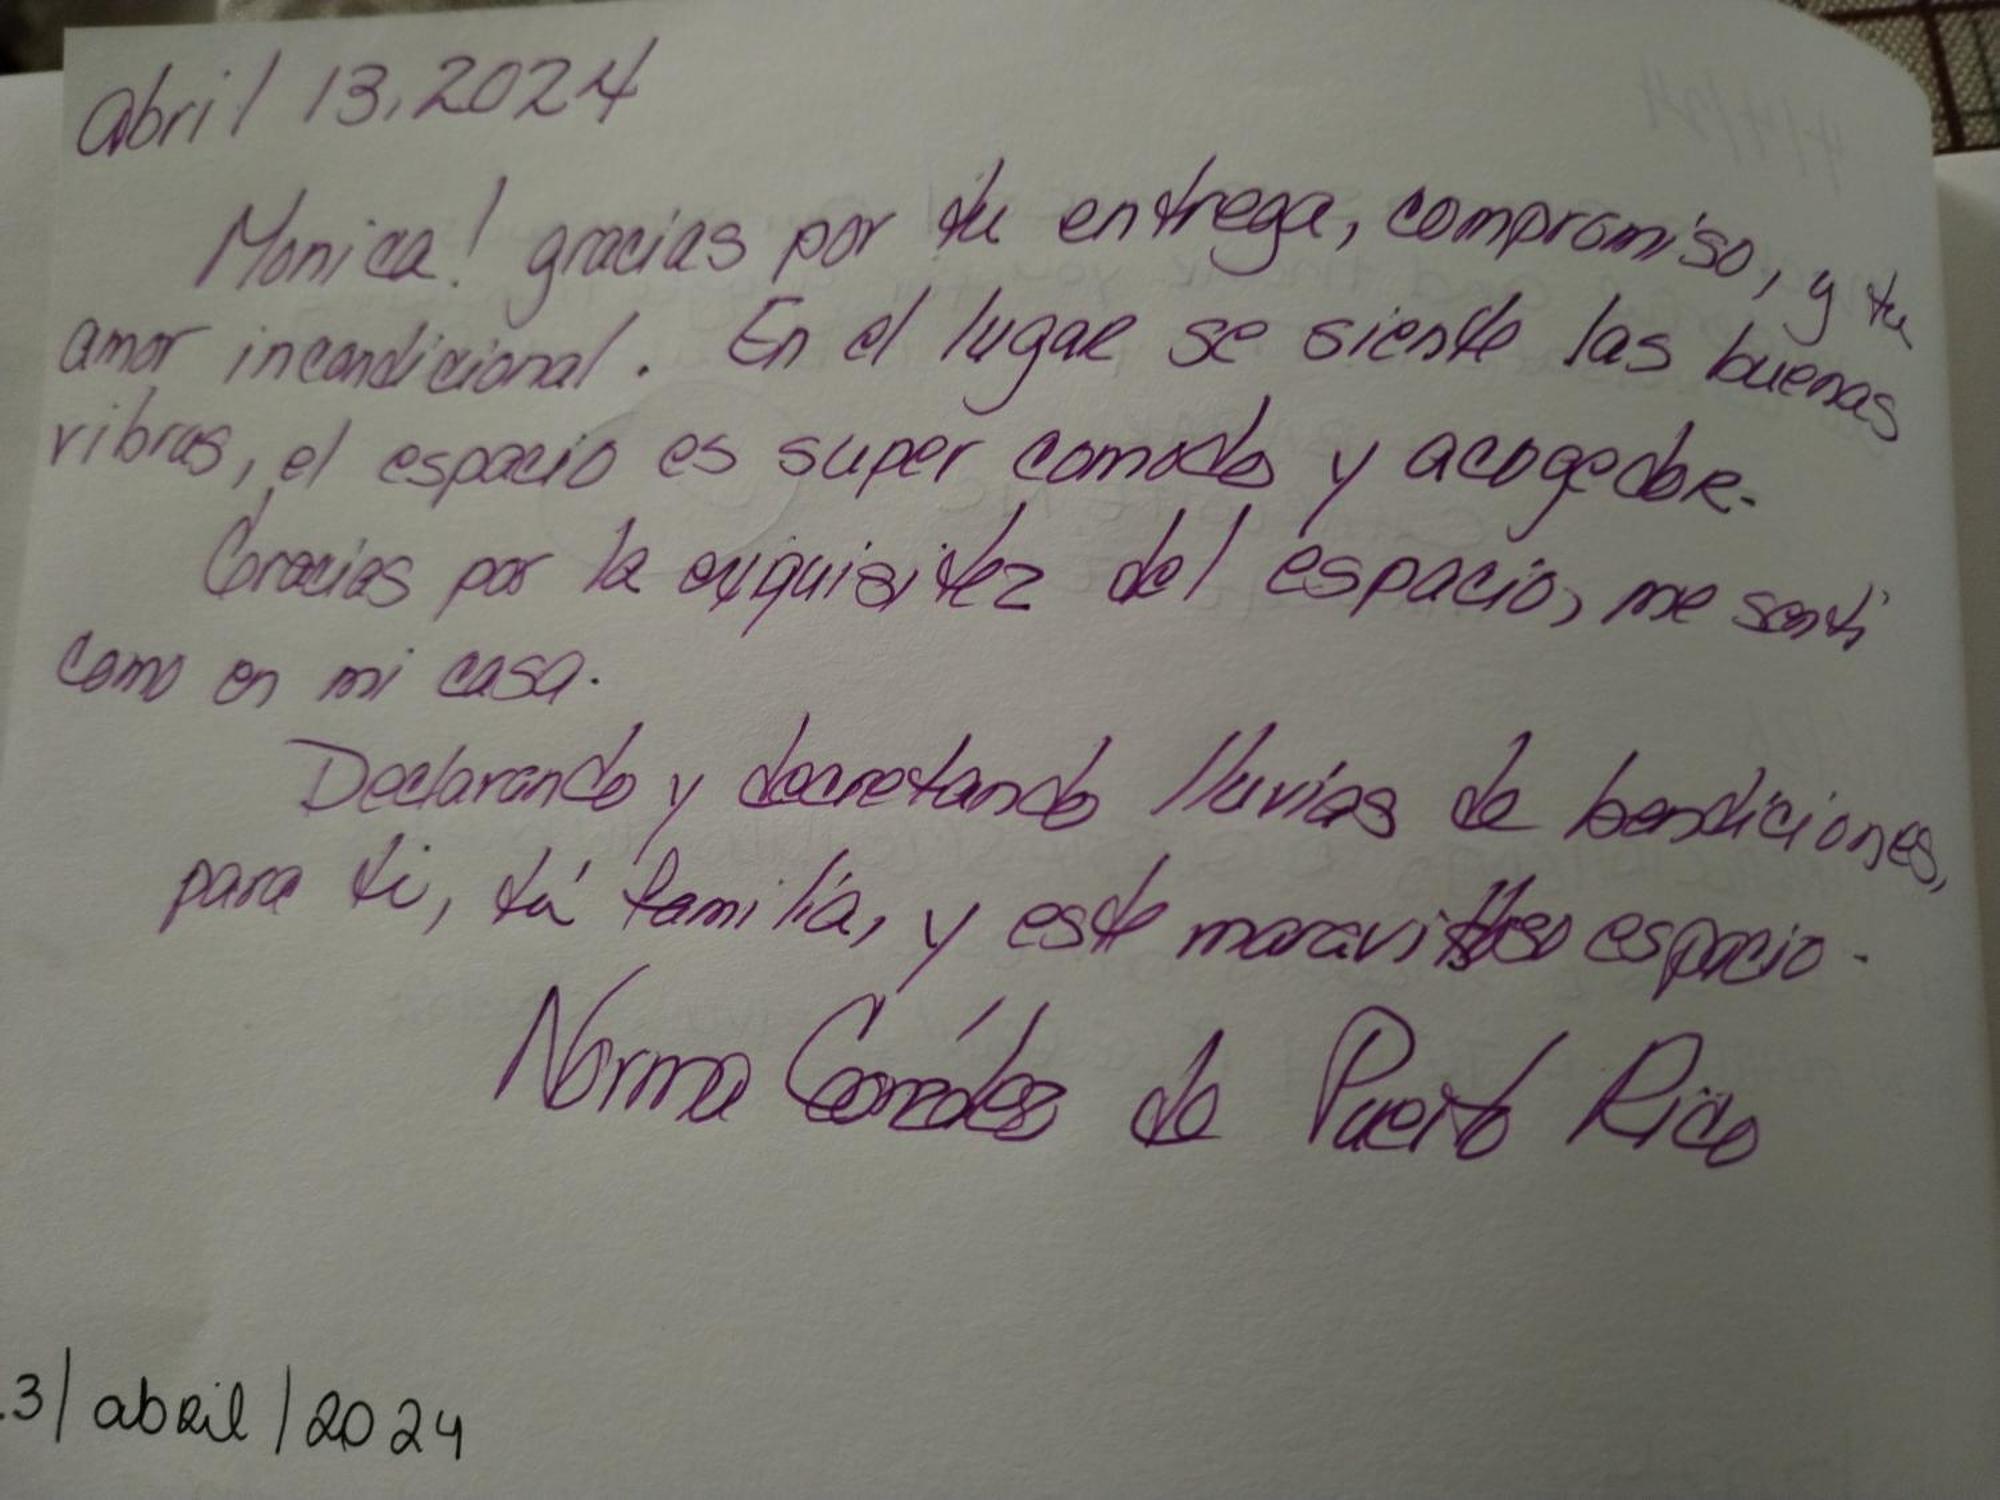 Abril 13, 2024
Monica! gracias por tu entrega, compromiso, y tu
amor incondicional. En el lugar se siente las buenas
vibras, el espacio es super comodo y acogedor.
Gracias por la exquisitez del espacio, me sentí
como en mi casa.
Declarando y decretando lluvias de bendiciones,
para ti, tú familía, y este maravilloso espacio.
Norma de Puerto Rico
3/abril/2024